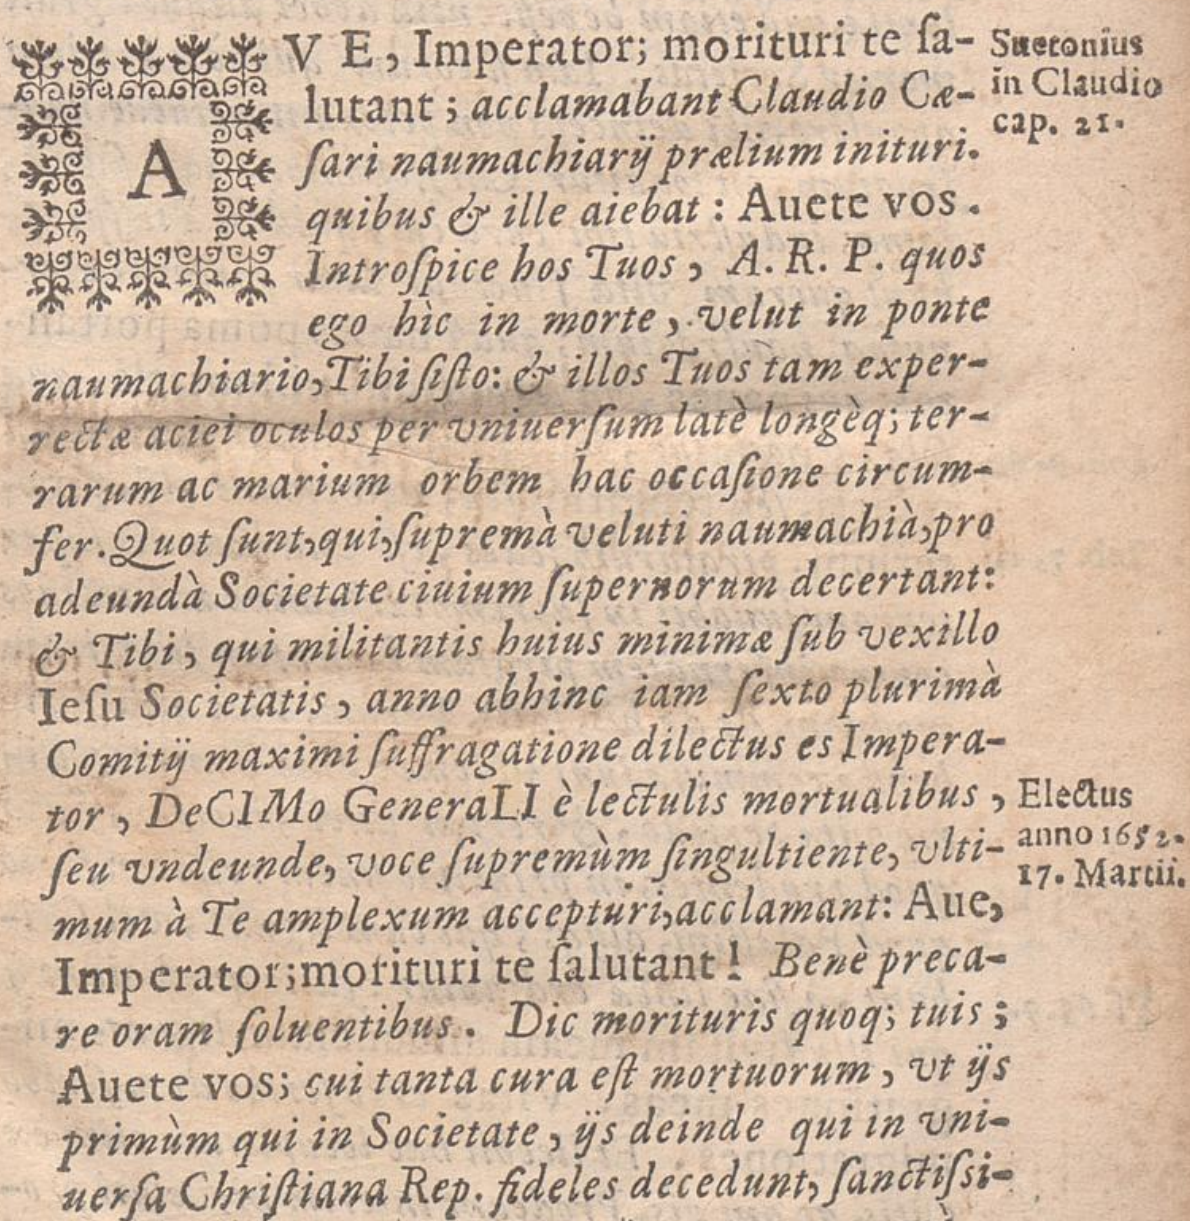 AVE, Imperator; morituri te ſa-
lutant; acclamabant Claudio Cæ-
ſari naumachiarij prælium inituri.
quibus & ille aiebat: Auete vos.
Introſpice hos Tuos, A. R. P. quos
ego hìc in morte, velut in ponte
naumachiario, Tibi ſiſto: & illos Tuos tam exper-
rectæ aciei oculos per vniuerſum latè longèq; ter-
rarum ac marium orbem hac occaſione circum-
fer. Quot ſunt, qui, ſupremà veluti naumachià, pro
adeundà Societate ciuium ſupernorum decertant:
& Tibi, qui militantis huius minimæ ſub vexillo
Ieſu Societatis, anno abhinc iam ſexto plurimà
Comitij maximi ſuffragatione dilectus es Impera-
tor, DeCIMo GeneraLI è lectulis mortualibus,
ſeu vndeunde, voce ſupremùm ſingultiente, vlti-
mum à Te amplexum accepturi, acclamant: Aue,
Imperator; morituri te ſalutant! Benè preca-
re oram ſoluentibus. Dic morituris quoq; tuis;
Auete vos; cui tanta cura eſt mortuorum, vt ijs
primùm qui in Societate, ijs deinde qui in vni-
uerſa Chriſtiana Rep. fideles decedunt, ſanctiſsi-
Suetonius
in Claudio
cap. 21.
Electus
anno 1652.
17. Martii.